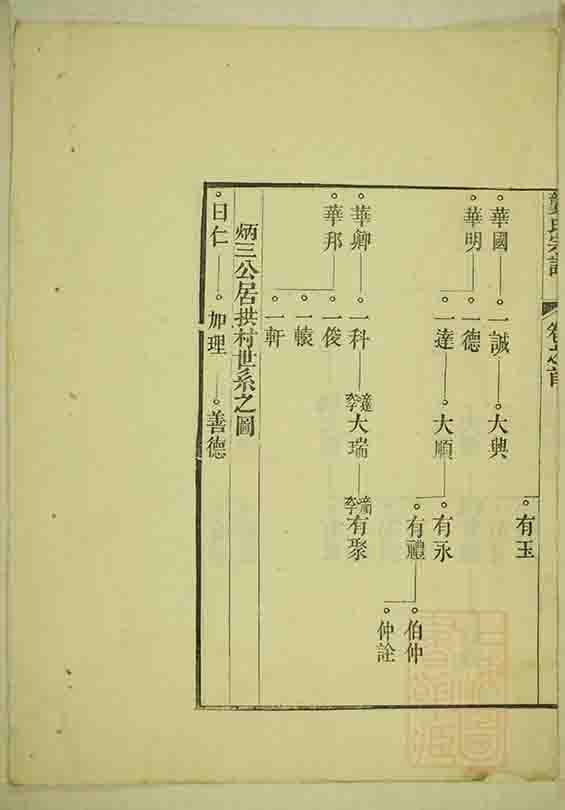 龔氏宗譜 卷之首
有玉
華國 一誠 大典
華明 一德
一達 大順 有永
有禮 伯仲
仲詮
華卿 一科 李達 大瑞 李喬 有聚
華邦 一俊
一轅
一軒
炳三公居拱村世系之圖
日仁 加理 善德